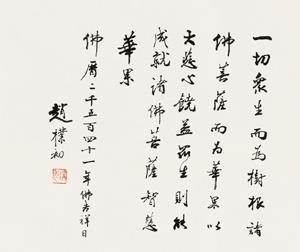 一切衆生而為樹根諸
佛菩薩而為華果以
大慈心饒益衆生則能
成就諸佛菩薩智慧
華果
佛曆二千五百四十一年佛吉祥日
趙樸初